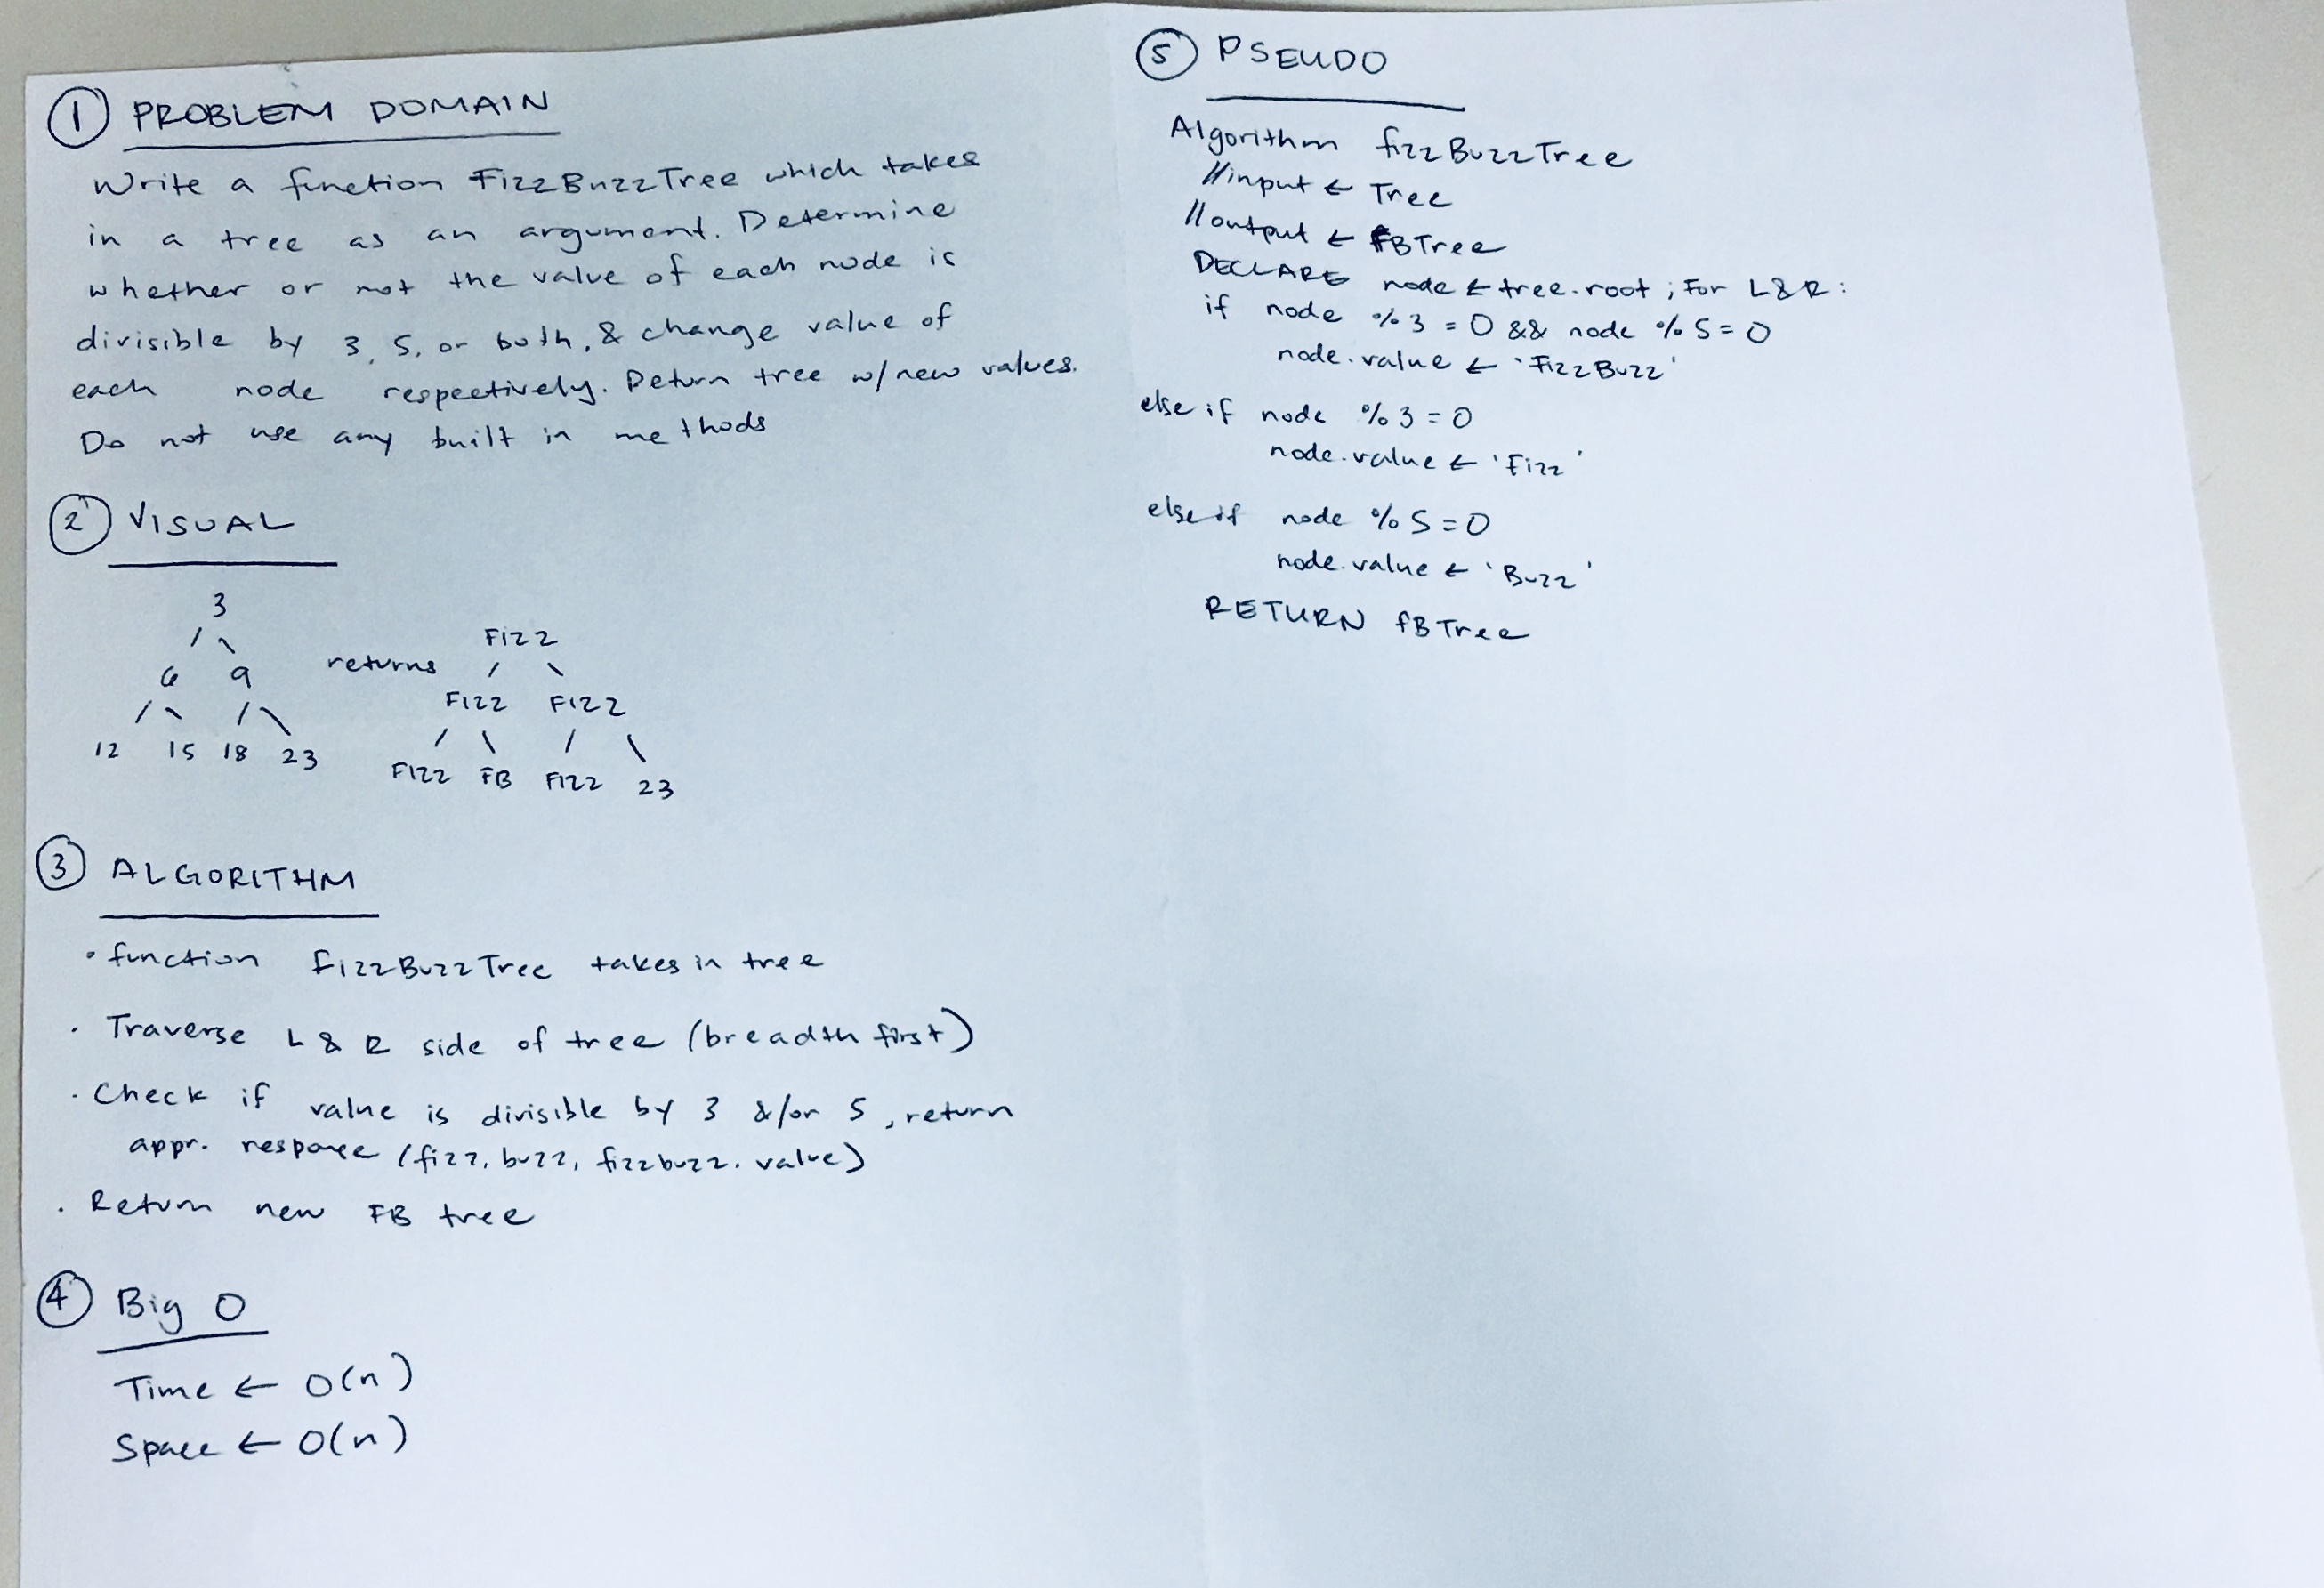 ① PROBLEM DOMAIN
Write a function FizzBuzzTree which takes
in a tree as an argument. Determine
whether or not the value of each node is
divisible by 3, 5, or both, & change value of
each node respectively. Return tree w/new values.
Do not use any built in methods
② VISUAL
3
/ \
6 9
/ \ / \
12 15 18 23
returns
FIZZ
/ \
FIZZ FIZZ
/ \ / \
FIZZ FB FIZZ 23
③ ALGORITHM
• function fizzBuzzTree takes in tree
• Traverse L & R side of tree (breadth first)
• Check if value is divisible by 3 &/or 5, return
appr. response (fizz, buzz, fizzbuzz. value)
• Return new FB tree
④ Big O
Time ← O(n)
Space ← O(n)
⑤ PSEUDO
Algorithm fizzBuzzTree
//input ← Tree
//output ← FBTree
DECLARE node ← tree.root ; For L&R:
if node % 3 = 0 && node % 5 = 0
node.value ← 'FizzBuzz'
else if node % 3 = 0
node.value ← 'Fizz'
else if node % 5 = 0
node.value ← 'Buzz'
RETURN fBTree